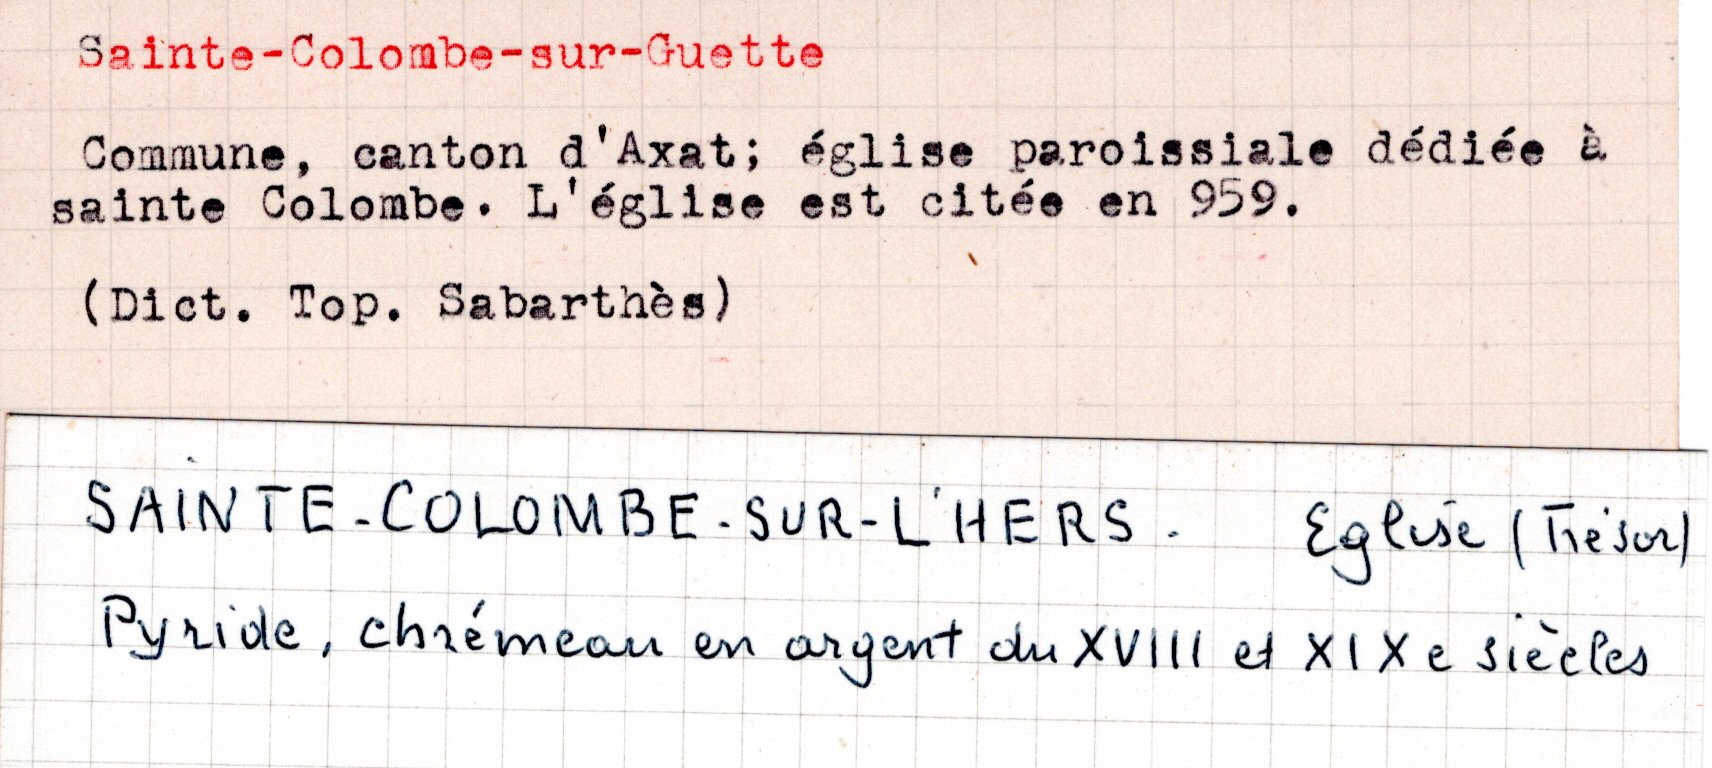 Sainte-Colombe-sur-Guette
Commune, canton d'Axat; église paroissiale dédiée à
sainte Colombe. L'église est citée en 959.
(Dict. Top. Sabarthès)
SAINTE-COLOMBE-SUR-L'HERS. Eglise (Trésor)
Pyxide, chrémeau en argent du XVIII et XIXe siècles